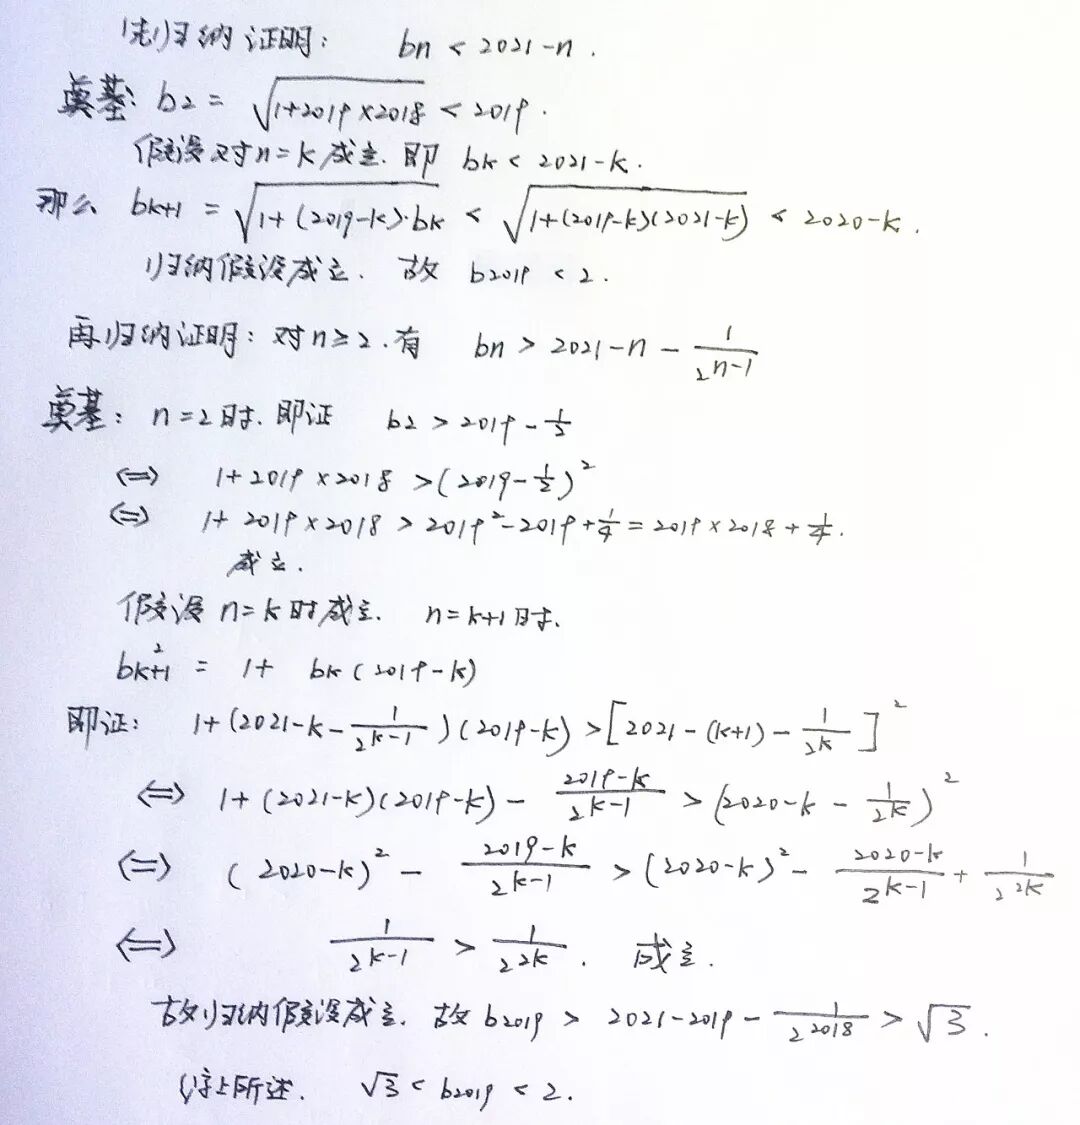 先归纳证明: bn < 2021-n.
奠基: b2 = √(1+2019×2018) < 2019.
假设对n=k成立. 即 bk < 2021-k.
那么 bk+1 = √(1+(2019-k)·bk) < √(1+(2019-k)(2021-k)) < 2020-k.
归纳假设成立. 故 b2019 < 2.
再归纳证明: 对n≥2.有 bn > 2021-n-1/2^(n-1)
奠基: n=2时.即证 b2 > 2019-1/2
⇔ 1+2019×2018 >(2019-1/2)²
⇔ 1+2019×2018 > 2019²-2019+1/4 = 2019×2018+1/4.
成立.
假设n=k时成立. n=k+1时.
bk+1² = 1+ bk(2019-k)
即证: 1+(2021-k-1/2^(k-1))(2019-k) >[2021-(k+1)-1/2^k]²
⇔ 1+(2021-k)(2019-k)-(2019-k)/2^(k-1) > (2020-k-1/2^k)²
⇔ (2020-k)²-(2019-k)/2^(k-1) > (2020-k)²-(2020-k)/2^(k-1)+1/2^(2k)
⇔ 1/2^(k-1) > 1/2^(2k). 成立.
故归纳假设成立. 故 b2019 > 2021-2019-1/2^2018 > √3.
综上所述. √3 < b2019 < 2.